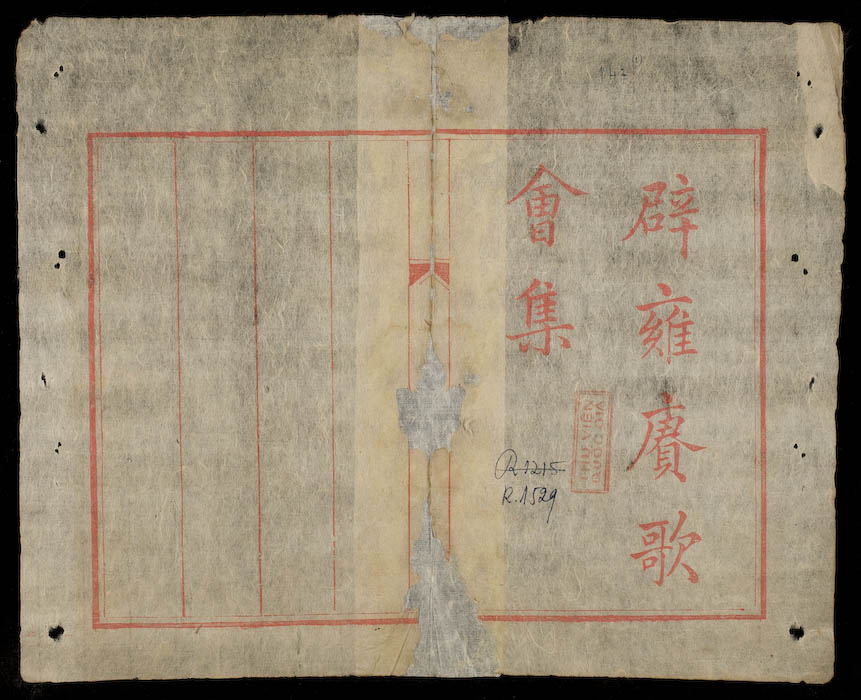 辟雍賡歌
會集
THƯ VIỆN
QUỐC GIA
R.1215
R.1529